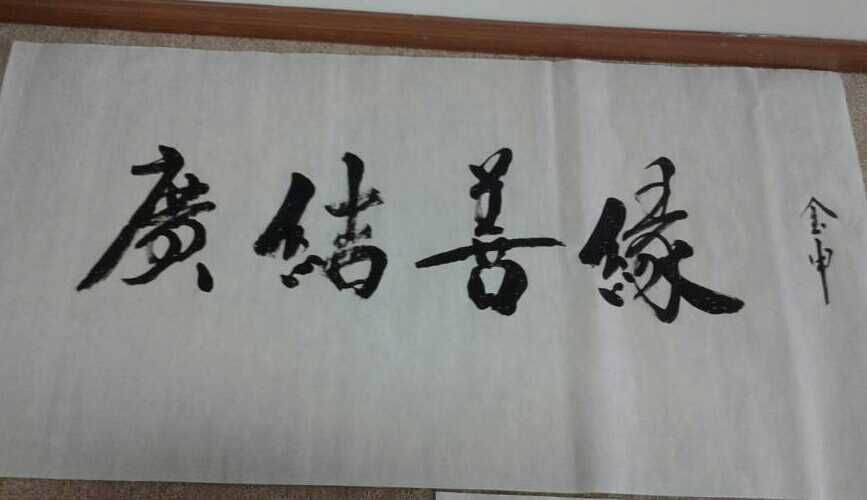 廣結善緣
金申